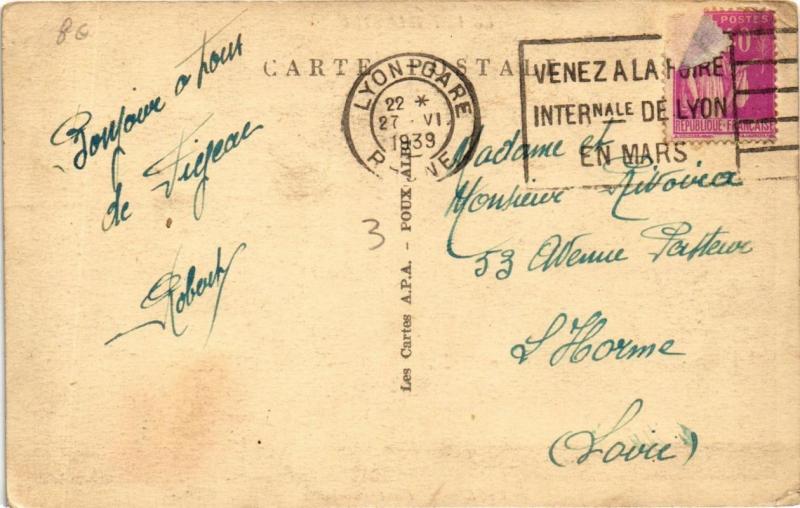 80
CARTE POSTALE
Bonjour a tous
de
Robert
LYON-GARE
22 *
27 - VI
1939
RHONE
VENEZ A LA FOIRE
INTERNALE DE LYON
EN MARS
POSTES
REPUBLIQUE FRANÇAISE
Madame et
Monsieur
53 Avenue Pasteur
L'Horme
(Loire)
3
Les Cartes A.P.A. - POUX-ALBI